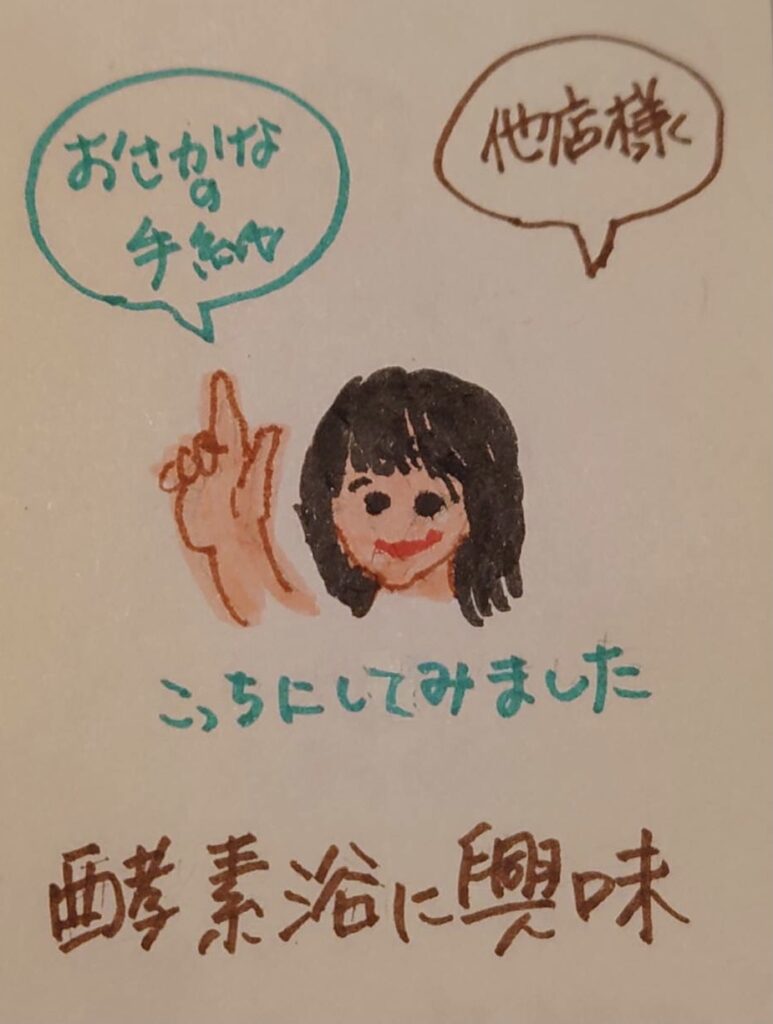 おさかな
の
手紙
他店様く
こっちにしてみました
酵素浴に興味